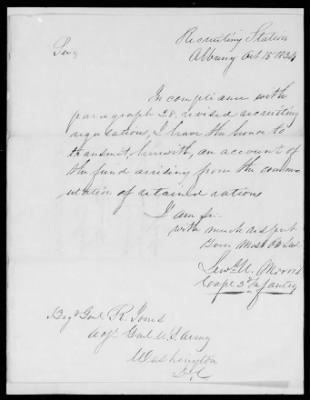 Recruiting Station
Albany Oct 18
Sir,
In compliance with
paragraph 28, revised recruiting
regulations, I have the honor to
transmit, herewith, an account of
the fund arising from the commu-
tation of retained rations
I am sir
with much respect
Your Most Ob Svt
Morris
Capt 3d Infantry
Brig Genl R Jones
Adjt Genl U S Army
Washington
D. C.